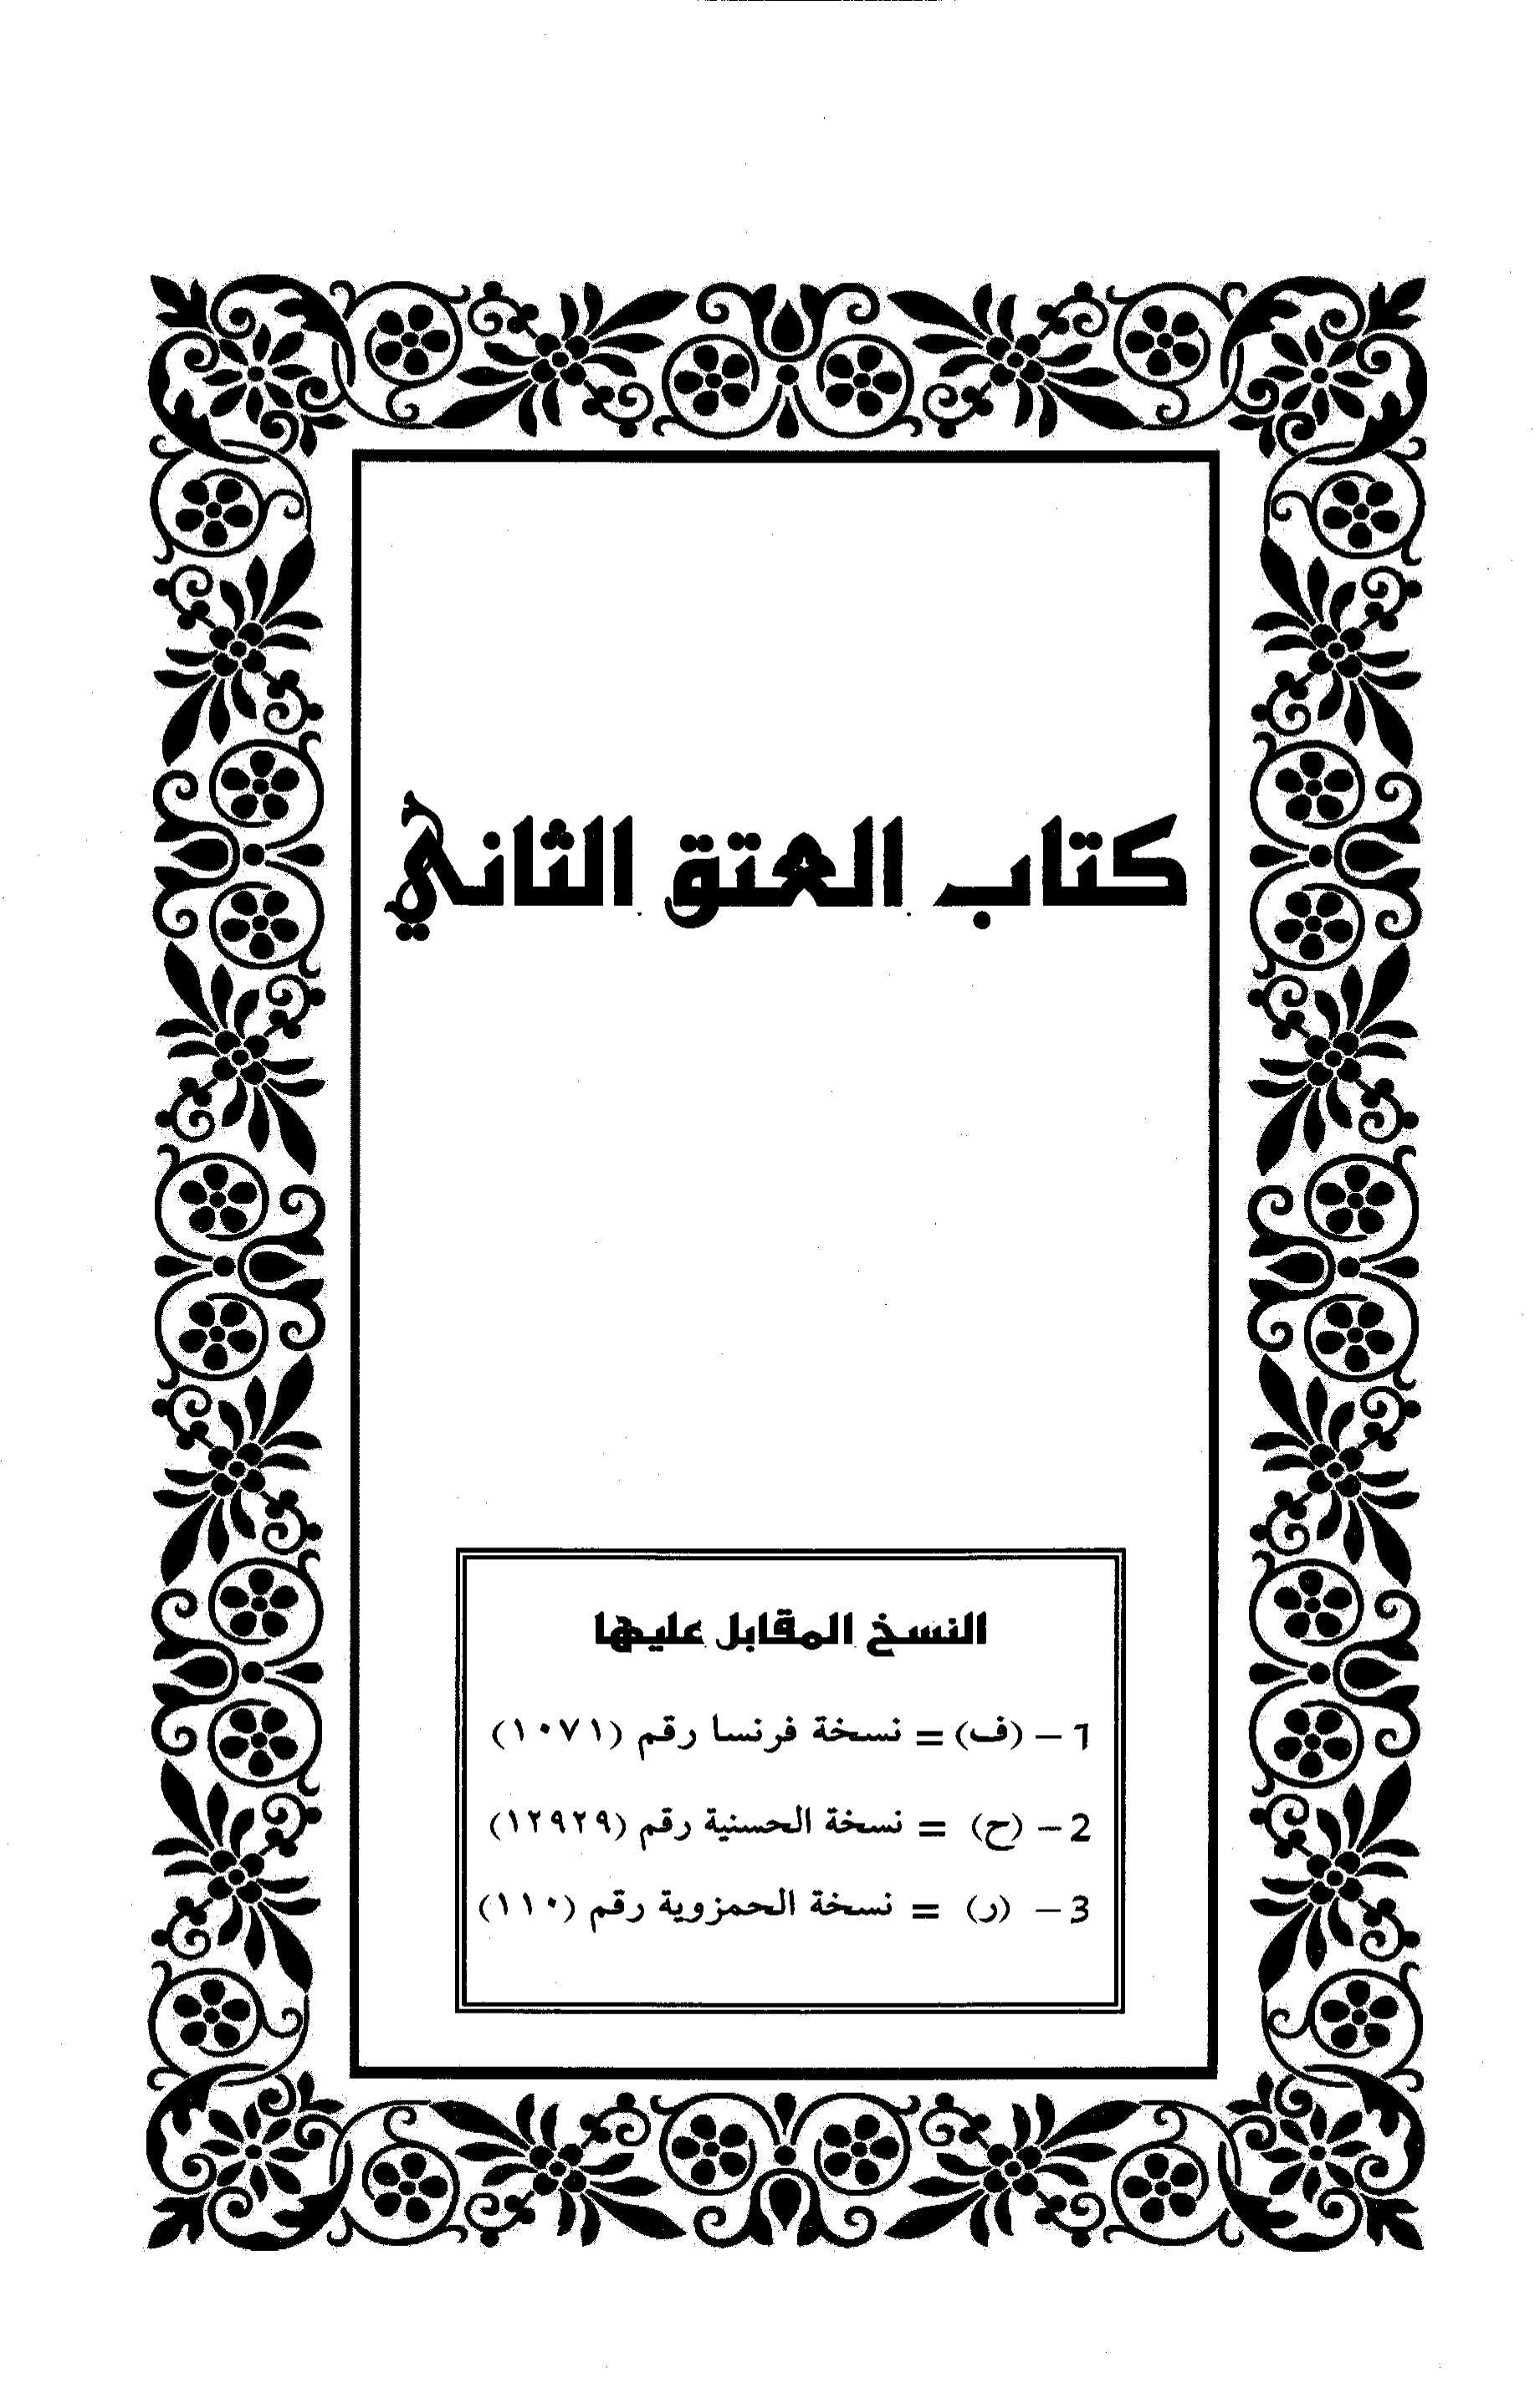 كتاب العتق الثاني
النسخ المقابل عليها
1 - (ف) = نسخة فرنسا رقم (١٠٧١)
2 - (ح) = نسخة الحسنية رقم (١٢٩٢٩)
3 - (ر) = نسخة الحمزوية رقم (١١٠)